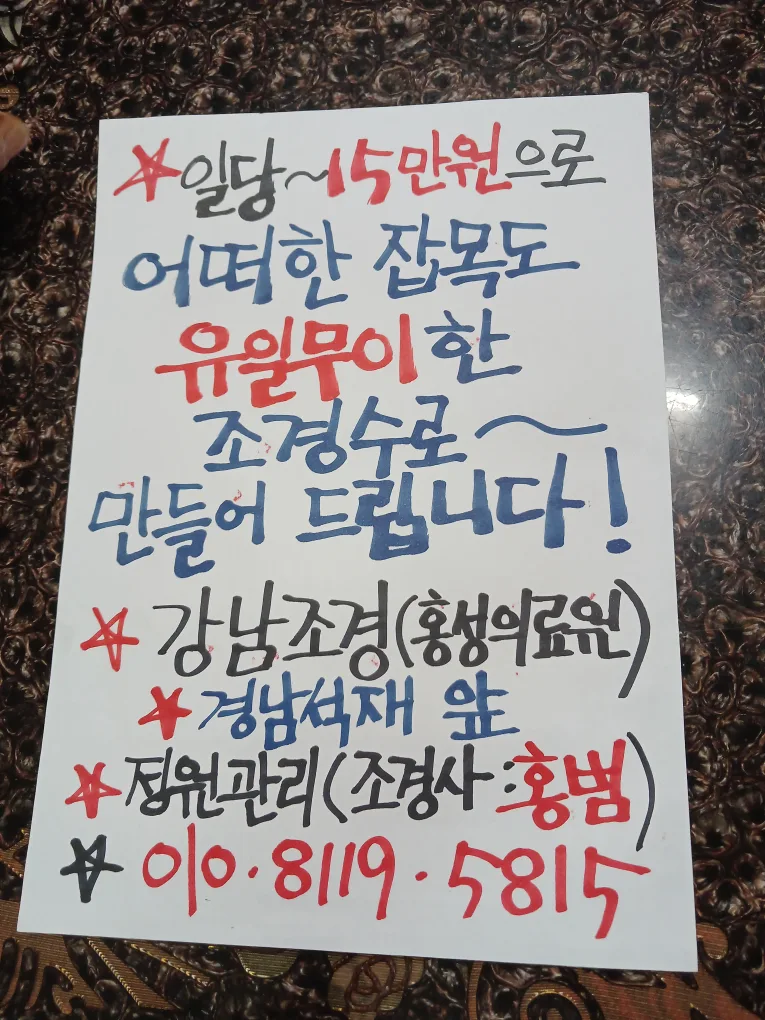 ☆일당~15만원으로
어떠한 잡목도
유일무이한
조경수로~
만들어 드립니다!
☆강남조경(홍성의료원)
☆경남석재 앞
☆정원관리(조경사:홍범)
☆010·8119·5815